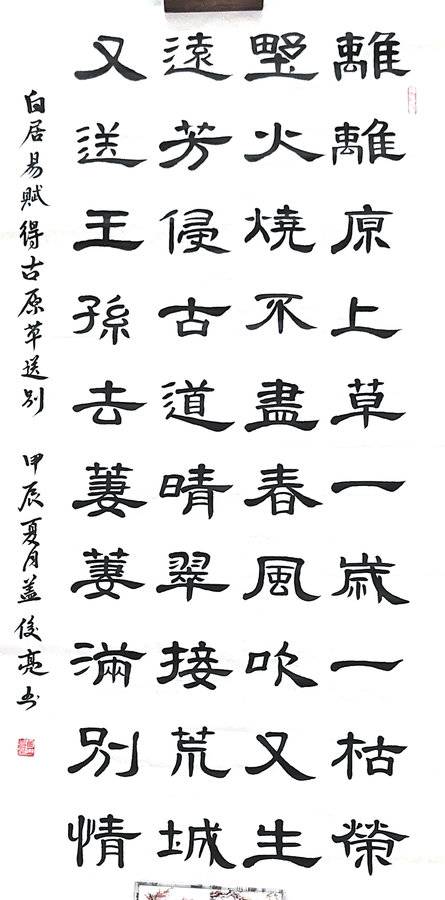 離離原上草一歲一枯榮
野火燒不盡春風吹又生
遠芳侵古道晴翠接荒城
又送王孫去萋萋滿別情
白居易賦得古原草送别 甲辰夏月盖俊亮书